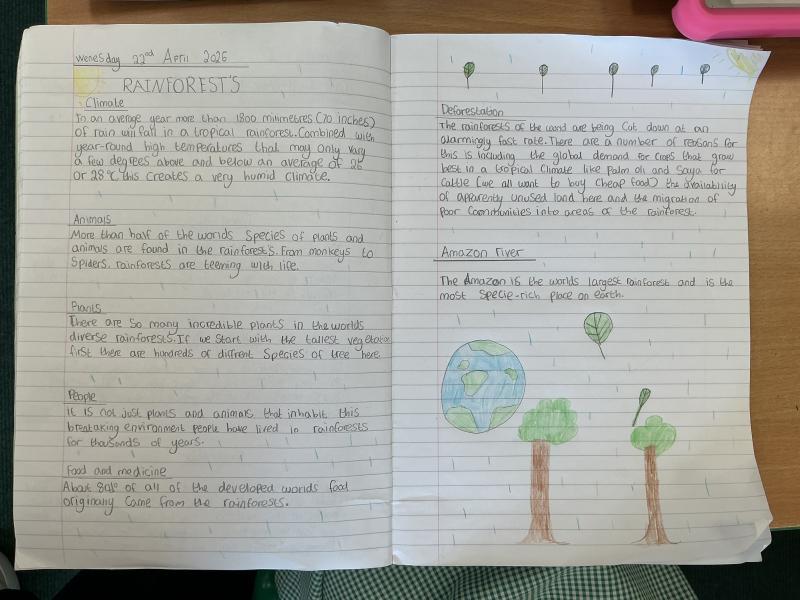 wenesday 22nd April 2026
RAINFOREST'S
Climate
In an average year more than 1800 milimetres (70 inches)
of rain will fall in a tropical rainforest. Combined with
year-round high temperatures that may only vary
a few degrees above and below an average of 26
or 28°C this creates a very humid climate.
Animals
More than half of the worlds species of plants and
animals are found in the rainforest's. From monkeys to
Spiders, rainforests are teeming with life.
Plants
There are so many incredible plants in the worlds
diverse rainforests. If we start with the tallest vegetation
first there are hundreds of diffrent species of tree here
People
it is not just plants and animals that inhabit this
breataking environment people have lived in rainforests
for thousands of years.
Food and medicine
About 80% of all of the developed worlds food
originally came from the rainforests.
Deforestation
The rainforests of the world are being cut down at an
alarmingly fast rate. There are a number of reasons for
this is including the global demand for crops that grow
best in a tropical climate like palm oli and Soya for
cattle (we all want to buy cheap food) the availability
of apparently unused land here and the migration of
poor communities into areas of the rainforest.
Amazon river
The Amazon is the worlds largest rainforest and is the
most specie-rich place on earth.